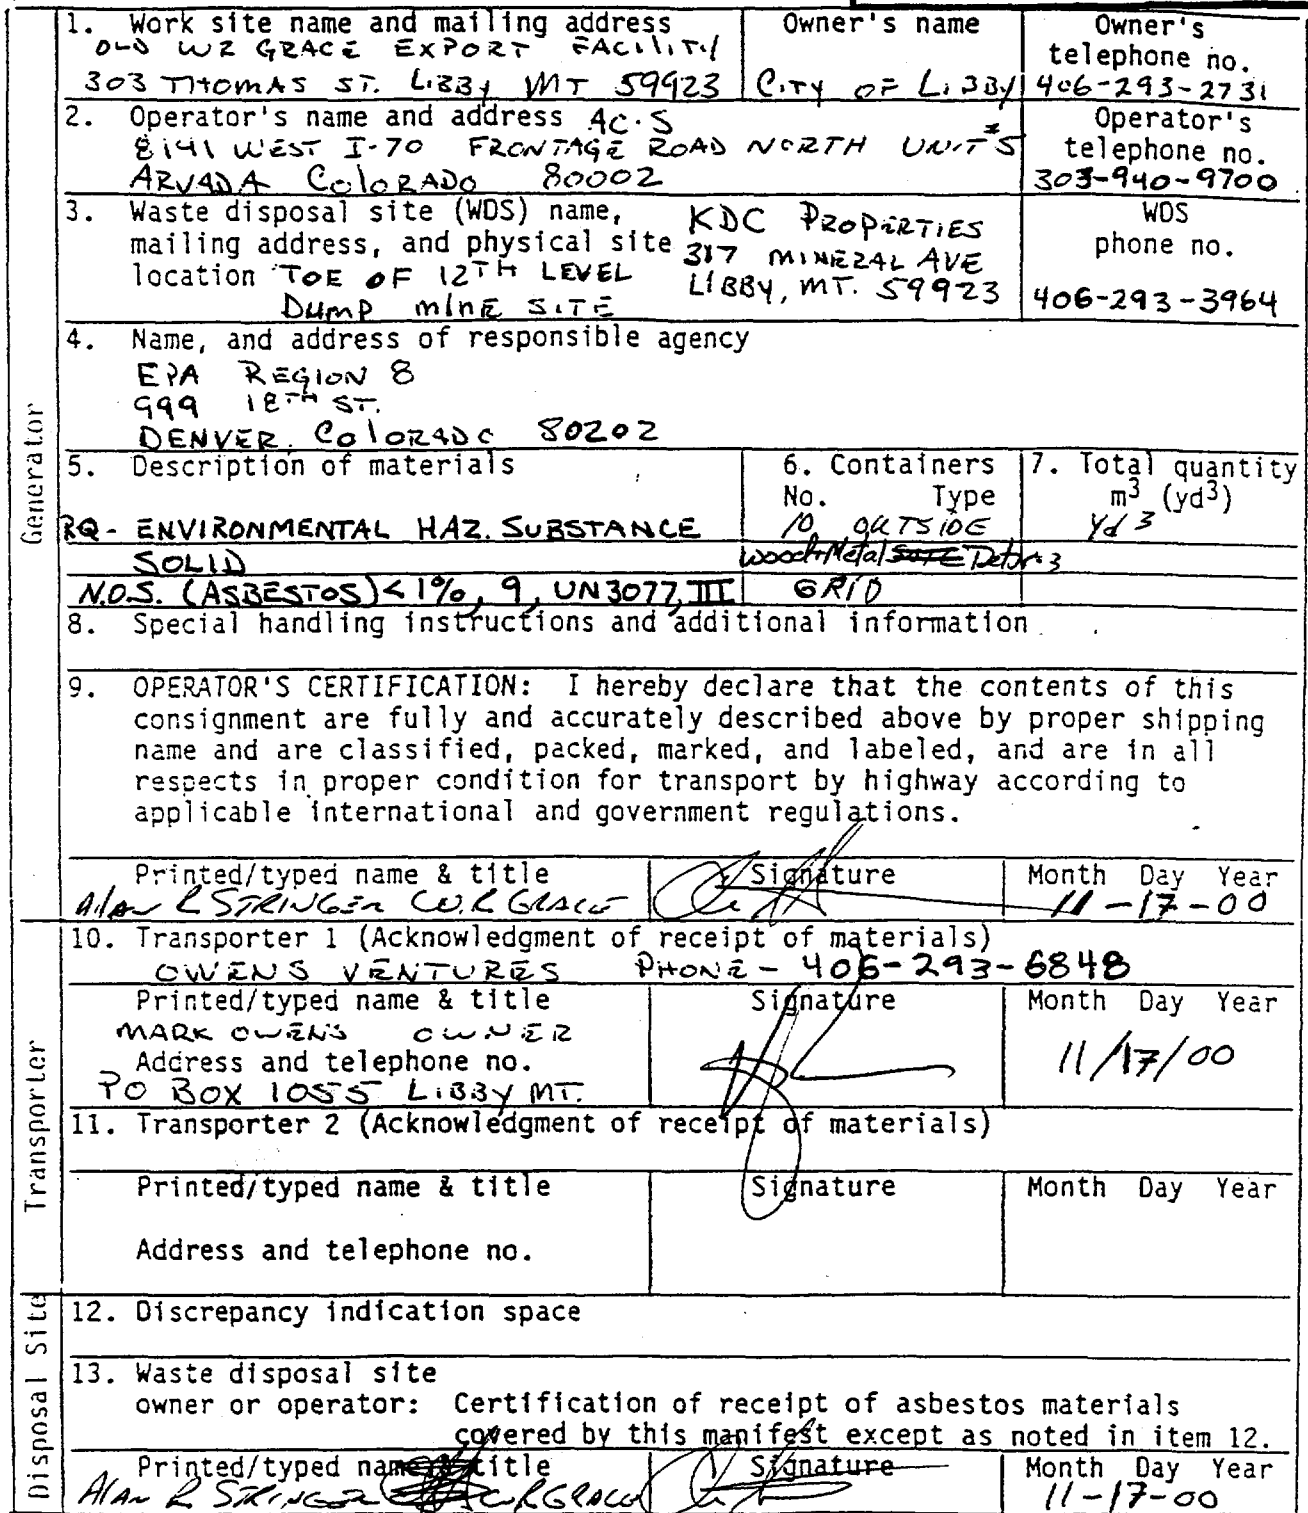 Generator
1. Work site name and mailing address
OLD WR GRACE EXPORT FACILITY
303 THOMAS ST. LIBBY MT 59923
Owner's name
CITY OF LIBBY
Owner's
telephone no.
406-293-2731
2. Operator's name and address AC·S
8141 WEST I-70 FRONTAGE ROAD NORTH UNIT #5
ARVADA COLORADO 80002
Operator's
telephone no.
303-940-9700
3. Waste disposal site (WDS) name,
mailing address, and physical site
location TOE OF 12TH LEVEL
DUMP MINE SITE
KDC PROPERTIES
317 MINERAL AVE
LIBBY, MT. 59923
WDS
phone no.
406-293-3964
4. Name, and address of responsible agency
EPA REGION 8
999 18TH ST.
DENVER, COLORADO 80202
5. Description of materials
RQ - ENVIRONMENTAL HAZ. SUBSTANCE
SOLID
N.O.S. (ASBESTOS) < 1%, 9, UN3077, III
6. Containers
No. Type
10 OUTSIDE
Wood + Metal
GRID
7. Total quantity
m3 (yd3)
Yd3
8. Special handling instructions and additional information
9. OPERATOR'S CERTIFICATION: I hereby declare that the contents of this
consignment are fully and accurately described above by proper shipping
name and are classified, packed, marked, and labeled, and are in all
respects in proper condition for transport by highway according to
applicable international and government regulations.
Printed/typed name & title
Alan R STRINGER W.R GRACE
Signature
Month Day Year
11-17-00
Transporter
10. Transporter 1 (Acknowledgment of receipt of materials)
OWENS VENTURES PHONE - 406-293-6848
Printed/typed name & title
MARK OWENS OWNER
Address and telephone no.
PO BOX 1055 LIBBY MT.
Signature
Month Day Year
11/17/00
11. Transporter 2 (Acknowledgment of receipt of materials)
Printed/typed name & title
Address and telephone no.
Signature
Month Day Year
Disposal Site
12. Discrepancy indication space
13. Waste disposal site
owner or operator: Certification of receipt of asbestos materials
covered by this manifest except as noted in item 12.
Printed/typed name & title
Alan R STRINGER W.R GRACE
Signature
Month Day Year
11-17-00